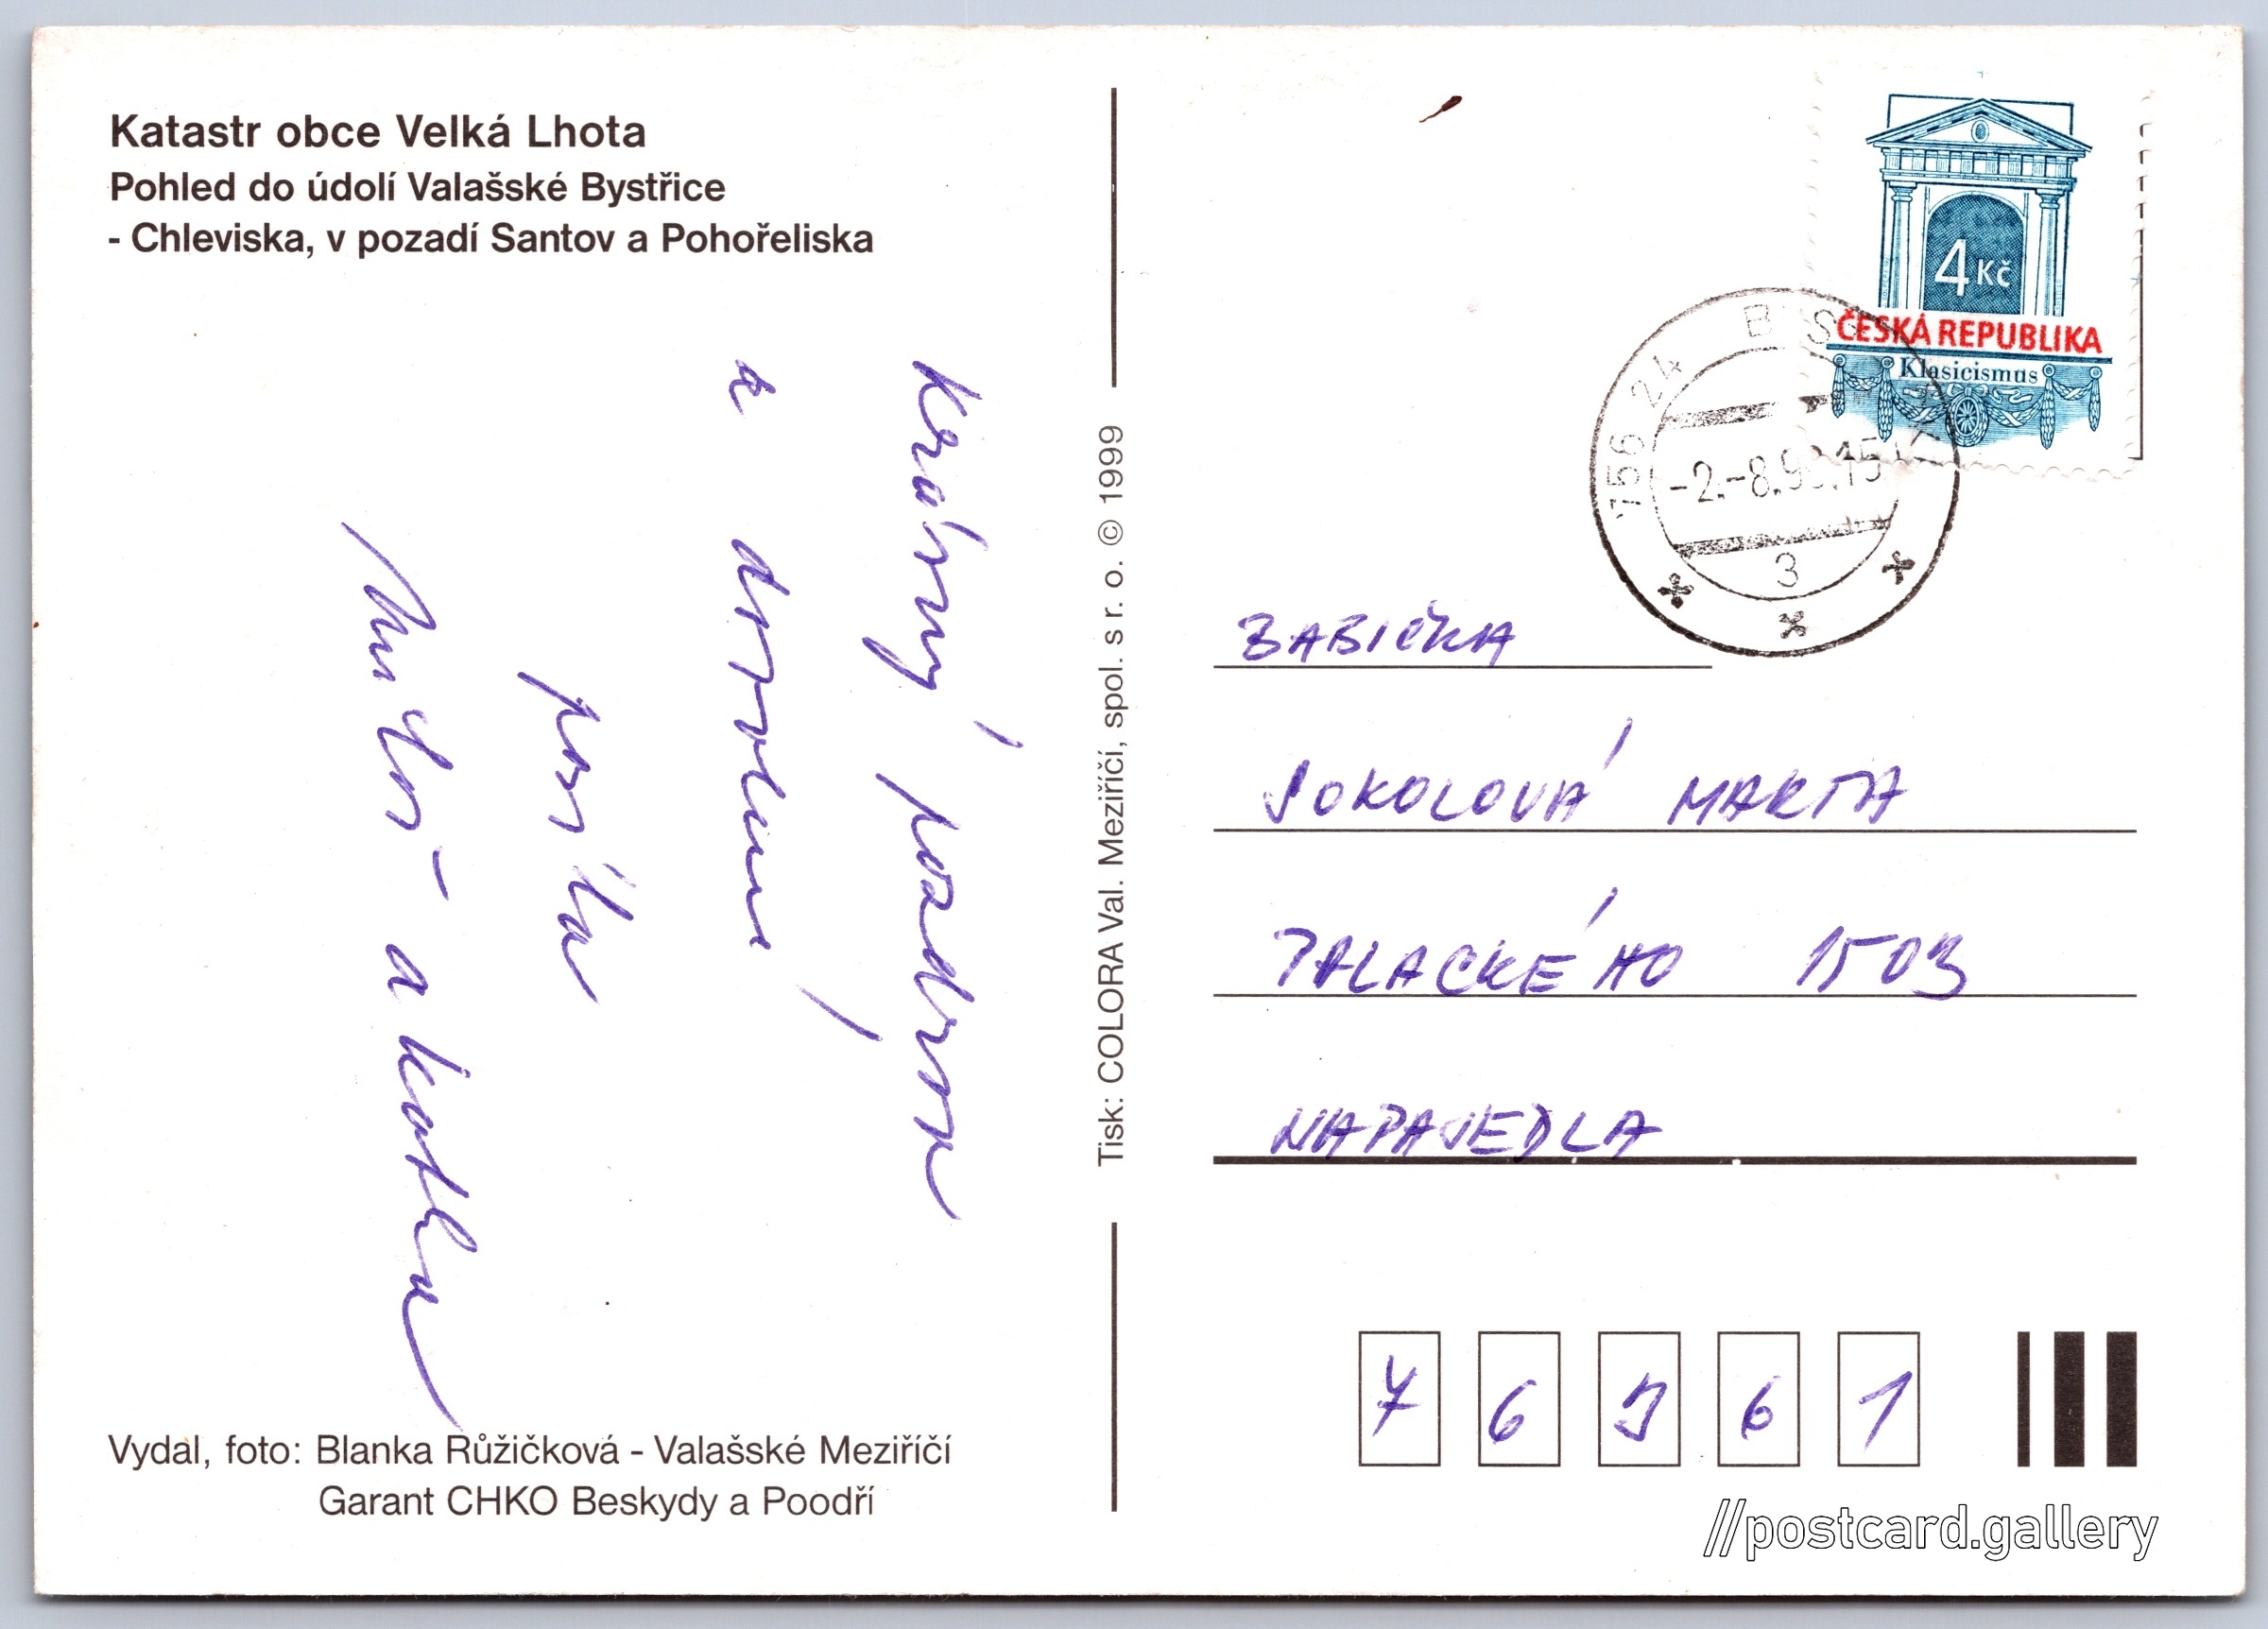 Katastr obce Velká Lhota
Pohled do údolí Valašské Bystřice
- Chleviska, v pozadí Santov a Pohořeliska
Krásný pozdrav
z dovolené
posílá
a
Vydal, foto: Blanka Růžičková - Valašské Meziříčí
Garant CHKO Beskydy a Poodří
Tisk: COLORA Val. Meziříčí, spol. s r. o. © 1999
4 Kč
ČESKÁ REPUBLIKA
Klasicismus
756 24
-2.-8.99.15
3
BABIČKA
SOKOLOVÁ MARTA
PALACKÉHO 1503
NAPAJEDLA
76361
//postcard.gallery